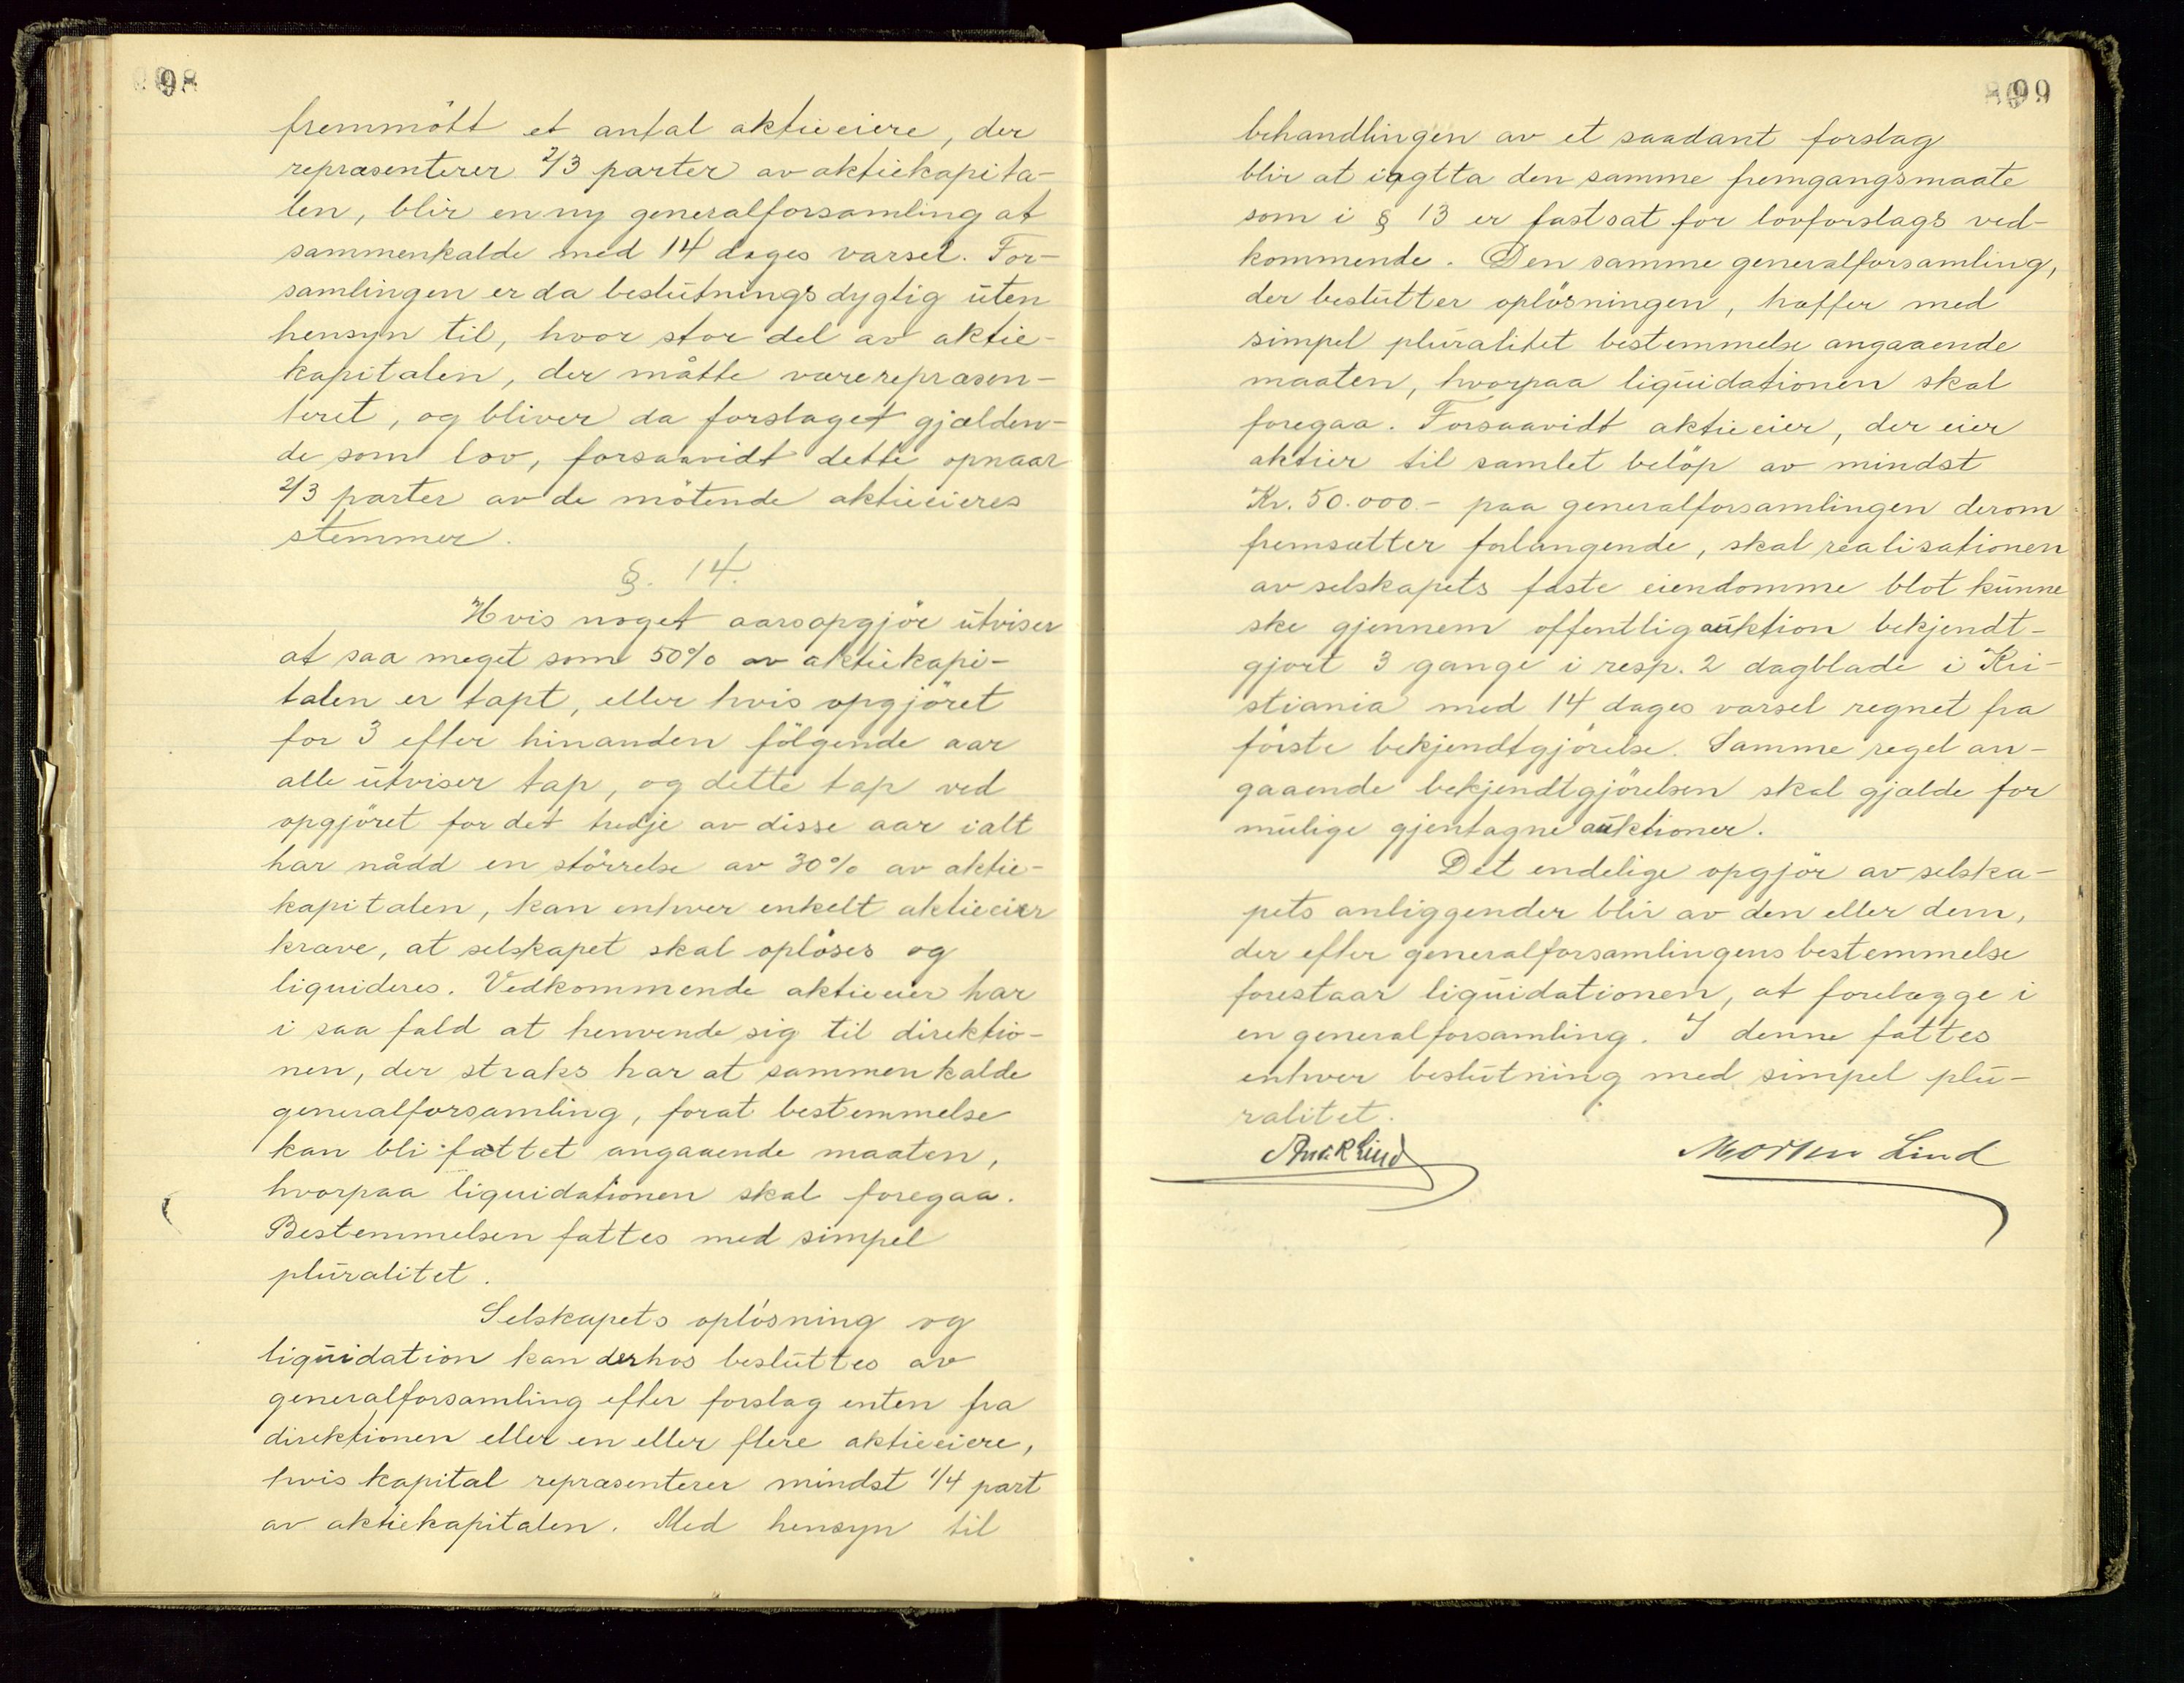 98
fremmött et antal aktieeiere, der
repræsenterer 2/3 parter av aktiekapita-
len, blir en ny generalforsamling at
sammenkalde med 14 dages varsel. For-
samlingen er da beslutningsdygtig uten
hensyn til, hvor stor del av aktie-
kapitalen, der måtte være repræsen-
teret, og bliver da forslaget gjælden-
de som lov, forsaavidt dette opnaar
2/3 parter av de mötende aktieeieres
stemmer.
§. 14.
Hvis noget aarsopgjör utviser
at saa meget som 50% av aktiekapi-
talen er tapt, eller hvis opgjöret
for 3 efter hinanden fölgende aar
alle utviser tap, og dette tap ved
opgjöret for det tredje av disse aar ialt
har nådd en störrelse av 30% av aktie-
kapitalen, kan enhver enkelt aktieeier
kræve, at selskapet skal oplöses og
liquideres. Vedkommende aktieeier har
i saa fald at henvende sig til direktio-
nen, der straks har at sammenkalde
generalforsamling, forat bestemmelse
kan bli fattet angaaende maaten,
hvorpaa liquidationen skal foregaa.
Bestemmelsen fattes med simpel
pluralitet.
Selskapets oplösning og
liquidation kan derhos besluttes av
generalforsamling efter forslag enten fra
direktionen eller en eller flere aktieeiere,
hvis kapital repræsenterer mindst 1/4 part
av aktiekapitalen. Med hensyn til
99
behandlingen av et saadant forslag
blir at iagtta den samme fremgangsmaate
som i § 13 er fastsat for lovforslags ved-
kommende. Den samme generalforsamling,
der beslutter oplösningen, træffer med
simpel pluralitet bestemmelse angaaende
maaten, hvorpaa liquidationen skal
foregaa. Forsaavidt aktieeier, der eier
aktier til samlet belöp av mindst
Kr. 50.000.- paa generalforsamlingen derom
fremsætter forlangende, skal realisationen
av selskapets faste eiendomme blot kunne
ske gjennem offentlig auktion bekjendt-
gjort 3 gange i resp. 2 dagblade i Kri-
stiania med 14 dages varsel regnet fra
förste bekjendtgjörelse. Samme regel an-
gaaende bekjendtgjörelsen skal gjælde for
mulige gjentagne auktioner.
Det endelige opgjör av selska-
pets anliggender blir av den eller dem,
der efter generalforsamlingens bestemmelse
forestaar liquidationen, at forelægge i
en generalforsamling. I denne fattes
enhver beslutning med simpel plu-
ralitet.
Lind Morten Lind